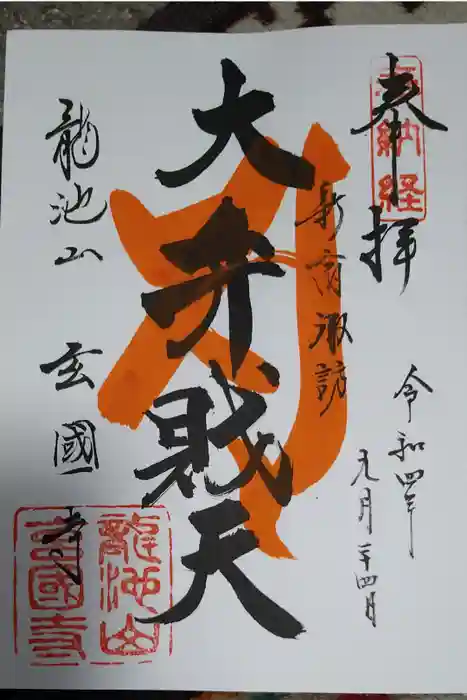 奉拝
奉納経
令和四年
九月二十四日
新宿諏訪
大弁戝天
龍池山 玄國寺
龍池山
玄國寺